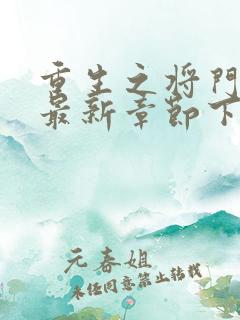 重生之将門
最新章節下
元春姐
未经同意禁止转载